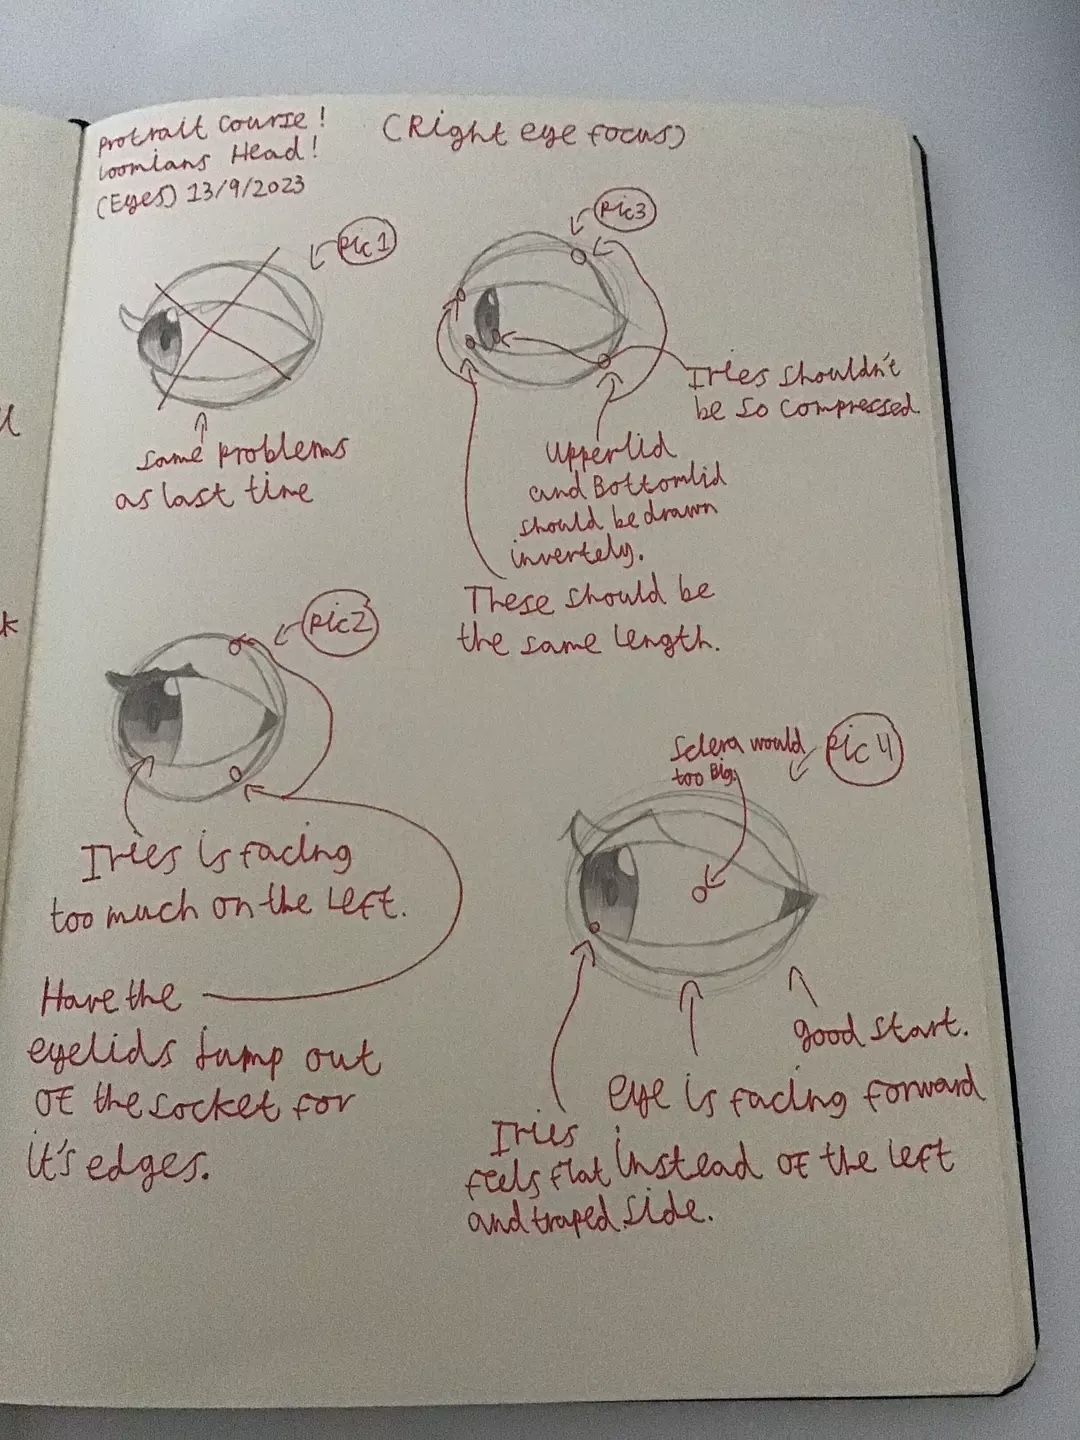 Protrait Course!
Loomians Head!
(Eyes) 13/9/2023
(Right eye focus)
Pic 1
same problems
as last time
Pic3
Iries shouldn't
be so compressed.
Upperlid
and Bottomlid
should be drawn
invertely.
These should be
the same length.
Pic2
Iries is facing
too much on the left.
Have the
eyelids Jump out
OF the socket for
it's edges.
Pic 4
Sclera would
too Big.
good start.
eye is facing forward
instead OF the left
side.
Iries
feels flat
and traped.
k